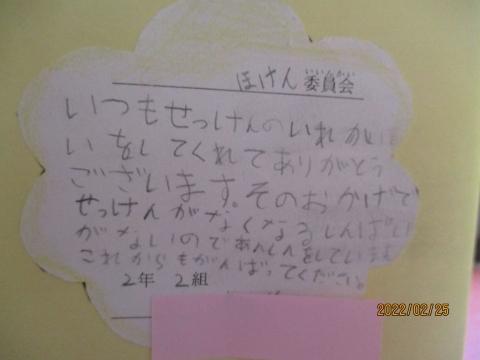 ほけん 委員会
いいんかい
いつもせっけんのいれかえ
いをしてくれてありがとう
ございます。そのおかげで
せっけんがなくなるしんぱい
がないのであんしんをしています
これからもがんばってください。
2年 2組
2022/02/25